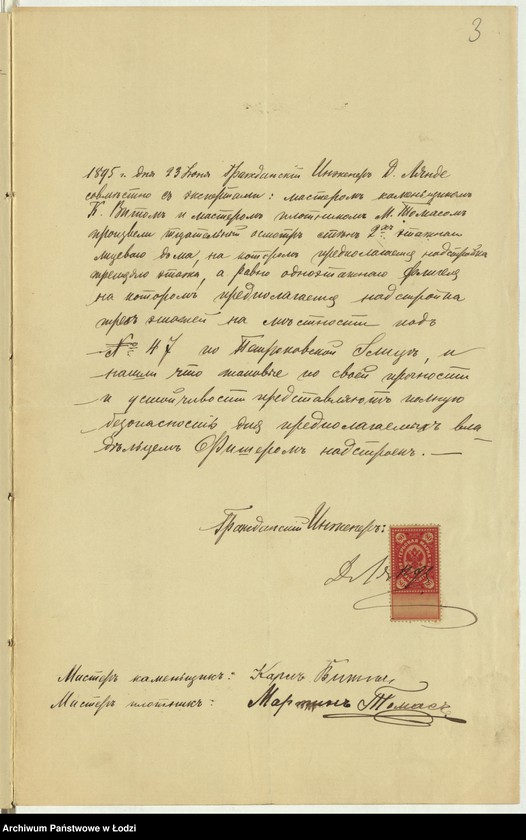 3
1895 г. дня 23 Іюня Гражданскій Инженеръ Д. Лянде
совмѣстно съ экспертами: мастеромъ каменьщикомъ
К. Витомъ и мастеромъ плотникомъ М. Томасомъ
произвели тщательный осмотръ стѣнъ 2хъ этажнаго
лицеваго дома, на которомъ предполагается надстройка
третьяго этажа, а равно одноэтажнаго флигеля
на которомъ предполагается надстройка
трехъ этажей на мѣстности подъ
№ 47 по Петроковской улицѣ, и
нашли что таковые по своей прочности
и устойчивости представляютъ полную
безопасность для предполагаемыхъ вла-
дѣльцемъ Фишеромъ надстроекъ. —
Гражданскій Инженеръ:
Д. Лянде
Мастеръ каменьщикъ: Карлъ
Мастеръ плотникъ: Мартинъ Томасъ
Archiwum Państwowe w Łodzi